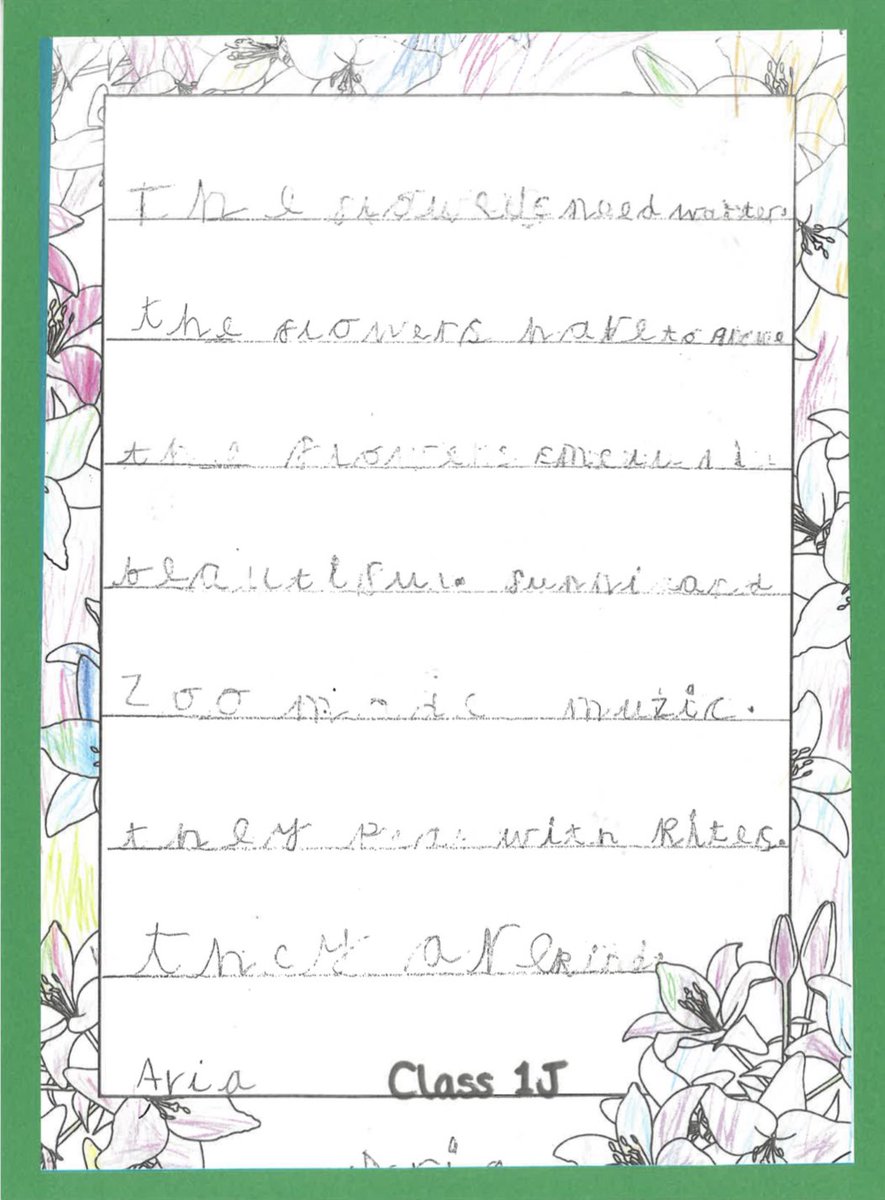 The flowers need watter.
the flowers have to grewe
the flowers smell
beautifull. sunni and
Zoo music muzic.
they play with kites.
they are kind.
Aria Class 1J
Aria